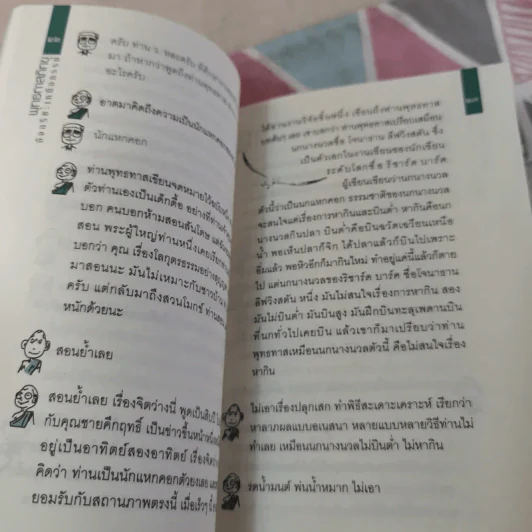 ครับ ท่าน ว. พอจะครับ
มา ถ้าหากว่าพูดถึงท่านพุทธทาส
อะไรครับ
อาตมาคิดถึงความเป็นนักแหกคอก
นักแหกคอก
ท่านพุทธทาสเขียนจดหมายไว้
ตัวท่านเองเป็นเด็กดื้อ อย่างที่ท่าน
บอก คนบอกห้ามสอนสันโดษ
สอน พระผู้ใหญ่ท่านหนึ่งเคยเรียก
บอกว่า คุณ เรื่องโลกุตรธรรมอย่า
มาสอนนะ มันไม่เหมาะกับชาวบ้าน
ครับ แต่กลับมาถึงสวนโมกข์ ท่าน
หนักด้วยนะ
สอนย้ำเลย
สอนย้ำเลย เรื่องจิตว่างนี่ พูดเป็น
กับคุณชายคึกฤทธิ์ เป็นข่าวขึ้นหน้าหนึ่ง
อยู่เป็นอาทิตย์สองอาทิตย์ เรื่อง
คิดว่า ท่านเป็นนักแหกคอกด้วยตงเลย
ยอมรับกับสถานภาพตรงนี้ เมื่อเร็วๆ นี้
ได้อ่านงานวิจัยชิ้นหนึ่ง เขียนถึงท่านพุทธทาส
ท่านพุทธทาสเปรียบเสมือน
นกนางนวลชื่อ โจนาธาน ลิฟวิงสตัน ซึ่ง
เป็นตัวเอกในงานเขียนของนักเขียน
ระดับโลกชื่อ ริชาร์ด บาร์ค
ผู้เขียนเขียนว่านกนางนวล
ตัวนี้ว่าเป็นนกแหกคอก ธรรมชาติของนกนางนวล
จะสนใจแต่เรื่องการหากินและบินต่ำ หากินคือนก
นางนวลกินปลา บินต่ำคือบินฉวัดเฉวียนเหนือ
น้ำ พอเห็นปลาก็จิก ได้ปลาแล้วก็บินไปเพราะ
อิ่มแล้ว พอหิวอีกก็มากินใหม่ ทำอยู่แค่นี้แล้วก็ตาย
ไป แต่นกนางนวลของริชาร์ด บาร์ค ชื่อโจนาธาน
ลิฟวิงสตัน หนึ่ง มันไม่สนใจเรื่องการหากิน สอง
มันไม่บินต่ำ มันบินสูง มันฝึกบินทะลุเพดานบิน
ที่นกทั่วไปเคยบิน แล้วเขาก็มาเปรียบว่าท่าน
พุทธทาสเหมือนนกนางนวลตัวนี้ คือไม่สนใจเรื่อง
หากิน
ไม่เอาเรื่องปลุกเสก ทำพิธีสะเดาะเคราะห์ เรียกว่า
หาลาภผลแบบอเนสนา หลายแบบหลายวิธีท่านไม่
ทำเลย เหมือนนกนางนวลไม่บินต่ำ ไม่หากิน
รดน้ำมนต์ พ่นน้ำหมาก ไม่เอา